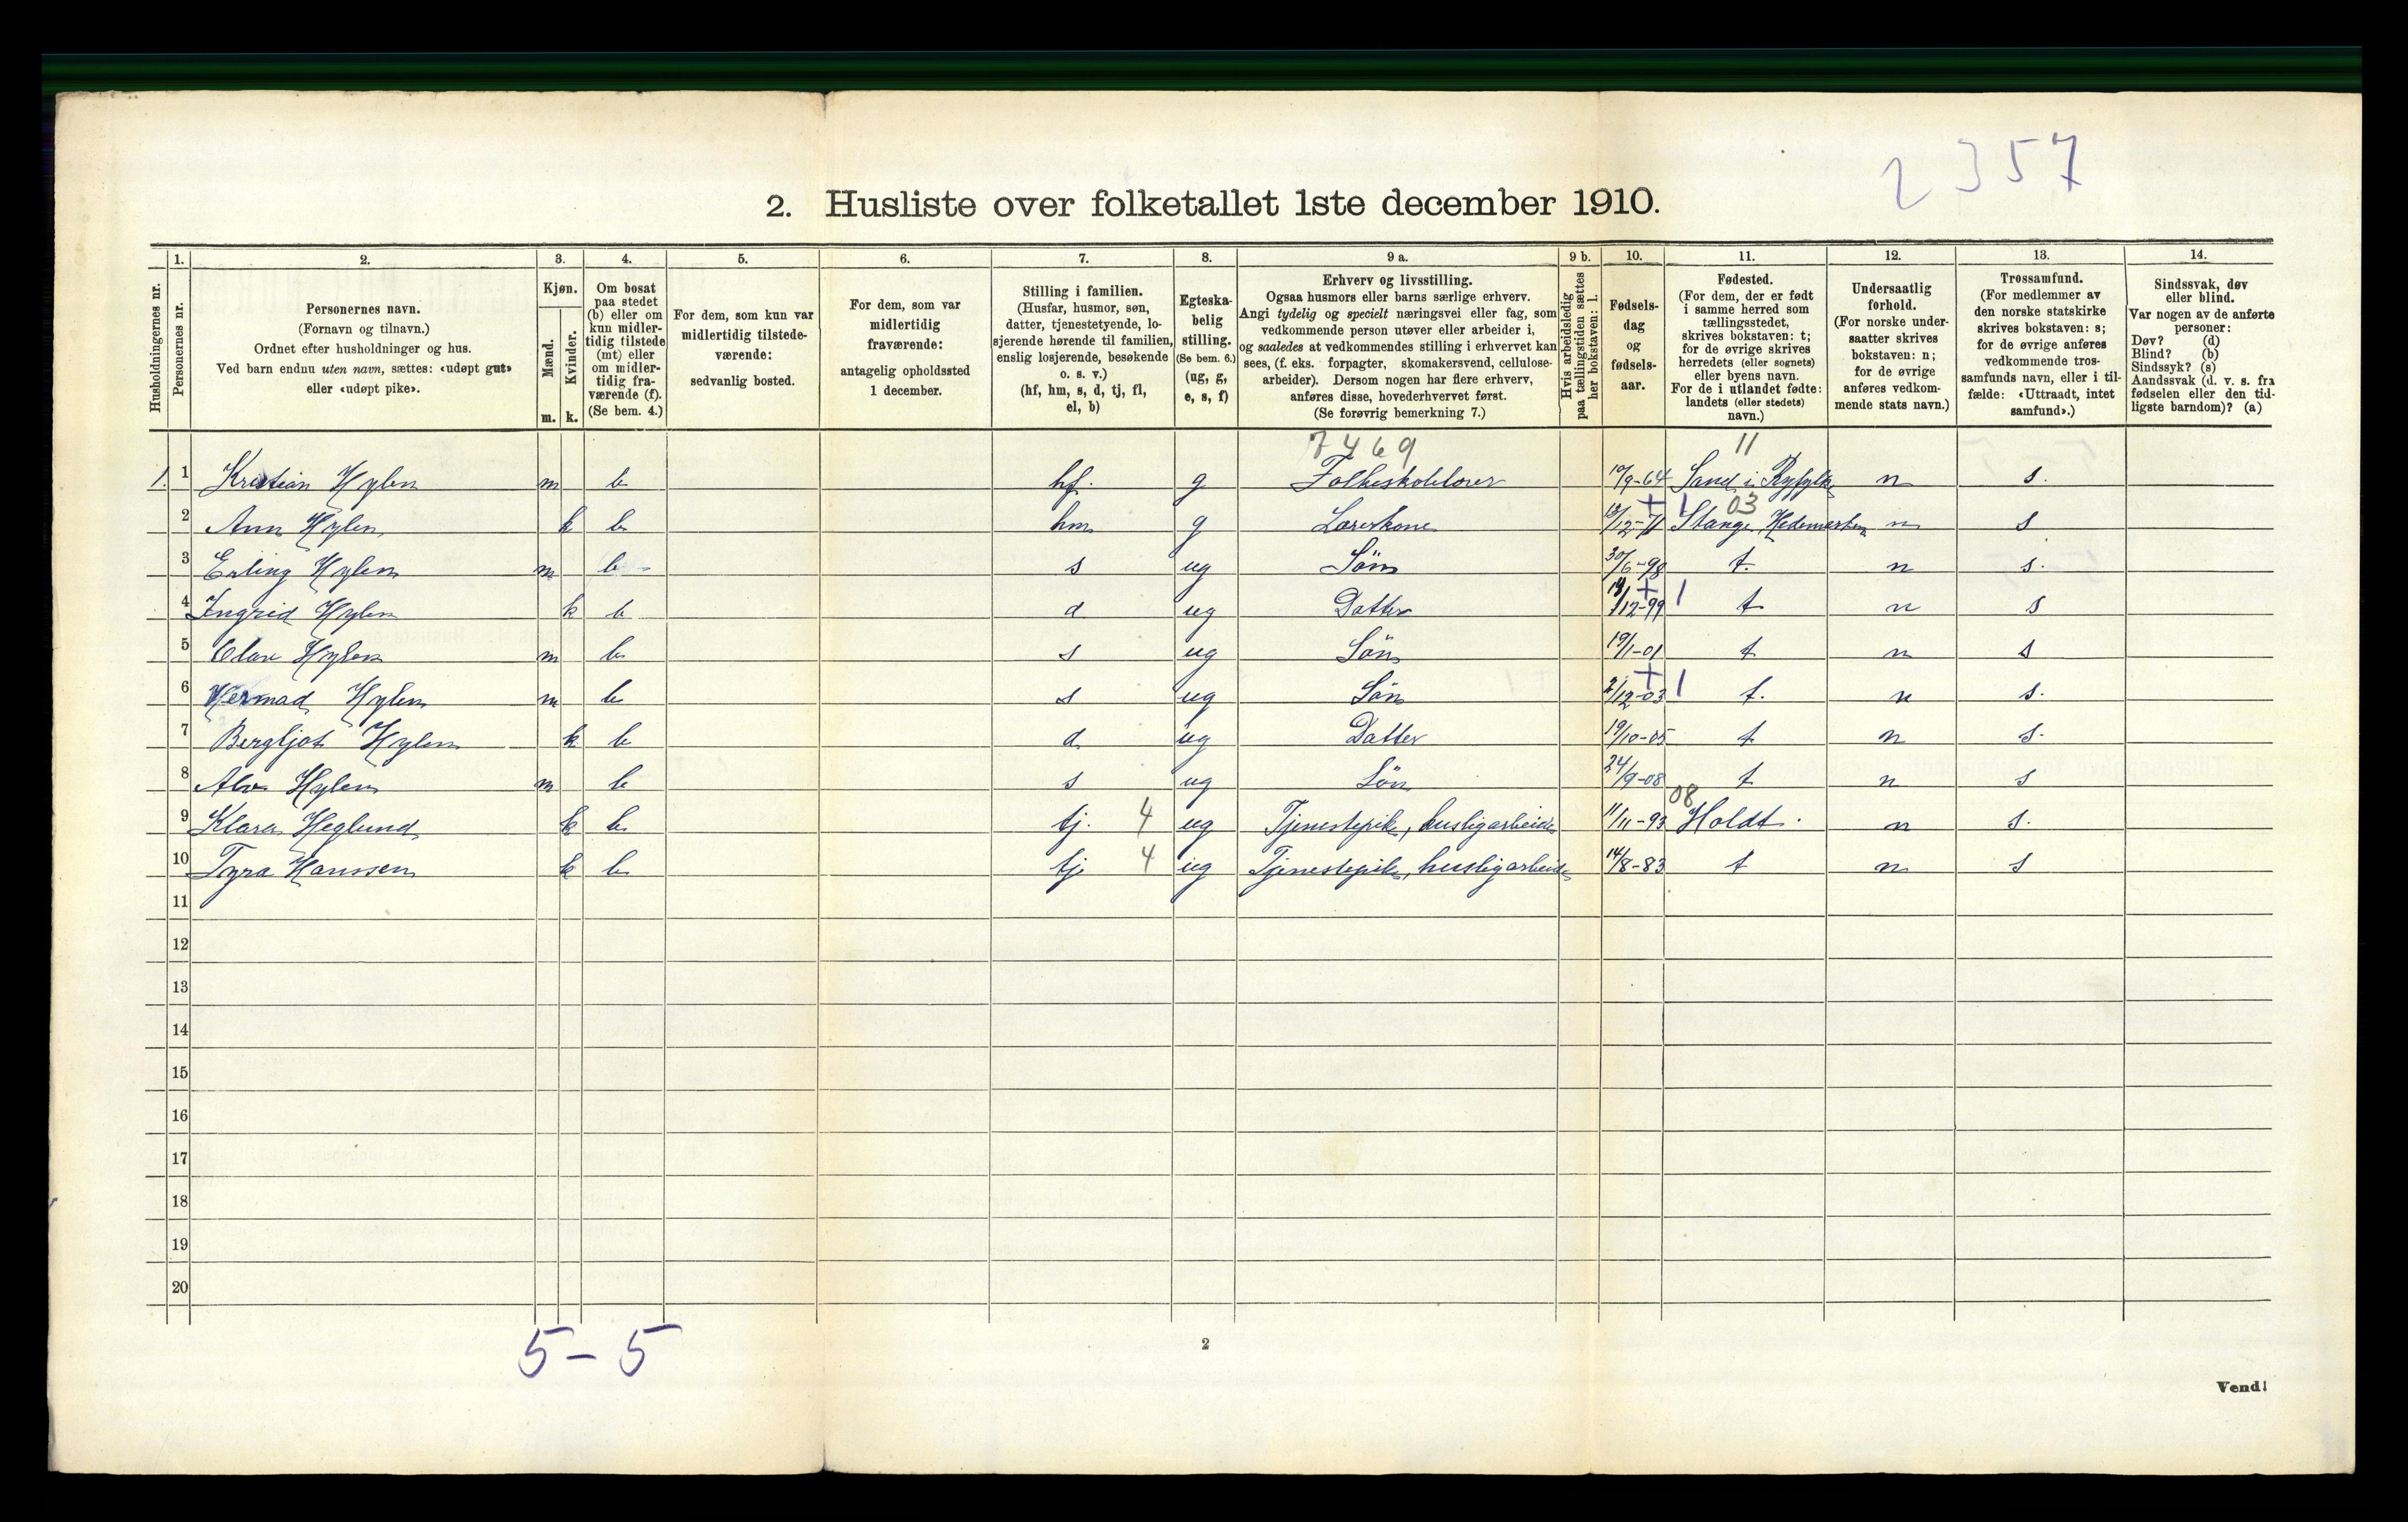 2357
2. Husliste over folketallet 1ste december 1910.
Husholdningernes nr.
1.
Personernes nr.
2.
Personernes navn.
(Fornavn og tilnavn.)
Ordnet efter husholdninger og hus.
Ved barn endnu uten navn, sættes: «udøpt gut»
eller «udøpt pike».
3.
Kjøn.
Mænd.
Kvinder.
m. k.
4.
Om bosat
paa stedet
(b) eller om
kun midler-
tidig tilstede
(mt) eller
om midler-
tidig fra-
værende (f).
(Se bem. 4.)
5.
For dem, som kun var
midlertidig tilstede-
værende:
sedvanlig bosted.
6.
For dem, som var
midlertidig
fraværende:
antagelig opholdssted
1 december.
7.
Stilling i familien.
(Husfar, husmor, søn,
datter, tjenestetyende, lo-
sjerende hørende til familien,
enslig losjerende, besøkende
o. s. v.)
(hf, hm, s, d, tj, fl,
el, b)
8.
Egteska-
belig
stilling.
(Se bem. 6.)
(ug, g,
e, s, f)
9 a.
Erhverv og livsstilling.
Ogsaa husmors eller barns særlige erhverv.
Angi tydelig og specielt næringsvei eller fag, som
vedkommende person utøver eller arbeider i,
og saaledes at vedkommendes stilling i erhvervet kan
sees, (f. eks. forpagter, skomakersvend, cellulose-
arbeider). Dersom nogen har flere erhverv,
anføres disse, hovederhvervet først.
(Se forøvrig bemerkning 7.)
9 b.
Hvis arbeidsledig
paa tællingstiden sættes
her bokstaven: l.
10.
Fødsels-
dag
og
fødsels-
aar.
11.
Fødested.
(For dem, der er født
i samme herred som
tællingsstedet,
skrives bokstaven: t;
for de øvrige skrives
herredets (eller sognets)
eller byens navn.
For de i utlandet fødte:
landets (eller stedets)
navn.)
12.
Undersaatlig
forhold.
(For norske under-
saatter skrives
bokstaven: n;
for de øvrige
anføres vedkom-
mende stats navn.)
13.
Trossamfund.
(For medlemmer av
den norske statskirke
skrives bokstaven: s;
for de øvrige anføres
vedkommende tros-
samfunds navn, eller i til-
fælde: «Uttraadt, intet
samfund».)
14.
Sindssvak, døv
eller blind.
Var nogen av de anførte
personer:
Døv? (d)
Blind? (b)
Sindssyk? (s)
Aandssvak (d. v. s. fra
fødselen eller den tid-
ligste barndom)? (a)
7469 11
1. 1 Kristian Hylen m b hf. g Folkeskolelærer 10/9-64 Sand i Ryfylke n s.
+ 1 03
2 Ann Hylen k b hm g Lærerkone 13/12-71 Stange, Hedemarken n s
3 Erling Hylen m b s ug Søn 30/6-98 t. n s.
+ 1
4 Ingrid Hylen k b d ug Datter /12-99 t n s
5 Olav Hylen m b s ug Søn 19/1-01 t n s
+ 1
6 Hermod Hylen m b s ug Søn 2/12-03 t. n s.
7 Bergljot Hylen k b d ug Datter 19/10-05 t n s.
8 Alv Hylen m b s ug Søn 24/9-08 t n s
08
9 Klara Heglund k b tj. 4 ug Tjenestepike, husligarbeide 11/11-93 Holdt. n s.
10 Tyra Hanssen k b tj 4 ug Tjenestepike, husligarbeide 14/8-83 t n s
11
12
13
14
15
16
17
18
19
20
5-5
2
Vend!